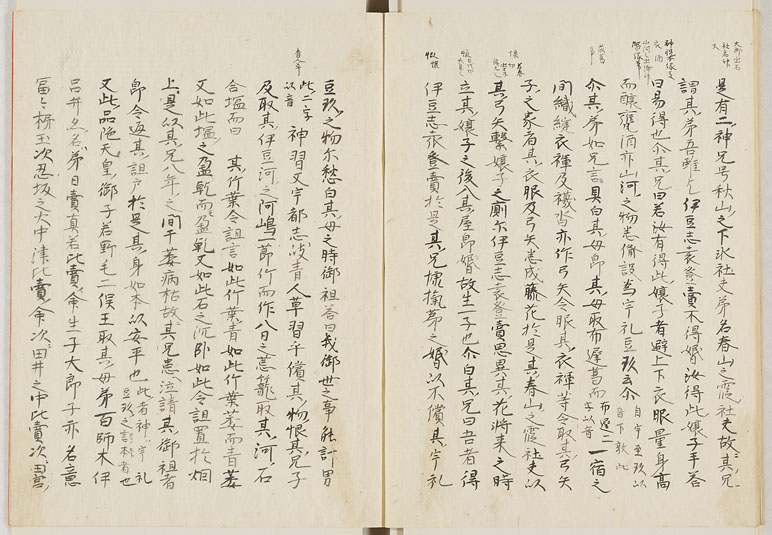 是有二神兄号秋山之下氷壮夫弟名春山之霞壮夫故其兄
謂其弟吾雖乞伊豆志袁登賣不得婚汝得此嬢子乎答
曰易得也尒其兄曰若汝有得此嬢子者避上下衣服量身高
而醸甕酒亦山河之物悉備設為宇礼豆玖云尒 自宇至玖以音下效此
尒其弟如兄言具白其母即其母取布遅葛而 布遅二字以音 一宿之
間織縫衣褌及襪沓亦作弓矢令服其衣褌等令取其弓矢
子之家者其衣服及弓矢悉成藤花於是其春山之霞壮夫以
其弓矢繋嬢子之厠尒伊豆志袁登賣思異其花将来之時
立其嬢子之後入其屋即婚故生一子也尒白其兄曰吾者得
伊豆志袁登賣於是其兄慷愾弟之婚以不償其宇礼
豆玖之物尒愁白其母之時御祖答曰我御世之事能許曽
此二字以音 神習又宇都志岐青人草習乎償其物恨其兄子
及取其伊豆河之河嶋一節竹而作八目之荒籠取其河石
合塩而曰 其竹葉令詛言如此竹葉青如此竹葉萎而青萎
又如此塩之盈乾而盈乾又如此石之沈卧如此令詛置於烟
上是以其兄八年之間干萎病枯故其兄患泣請其御祖者
即令返其詛戸於是其身如本以安平也 此者神宇礼豆玖之言本者也
又此品陀天皇御子若野毛二俣王取其母弟百師木伊
呂弁亦名弟日賣真若比賣命生一子大郎子亦名意
冨々杼王次忍坂之大中津比賣命次田井之中比賣次田宮